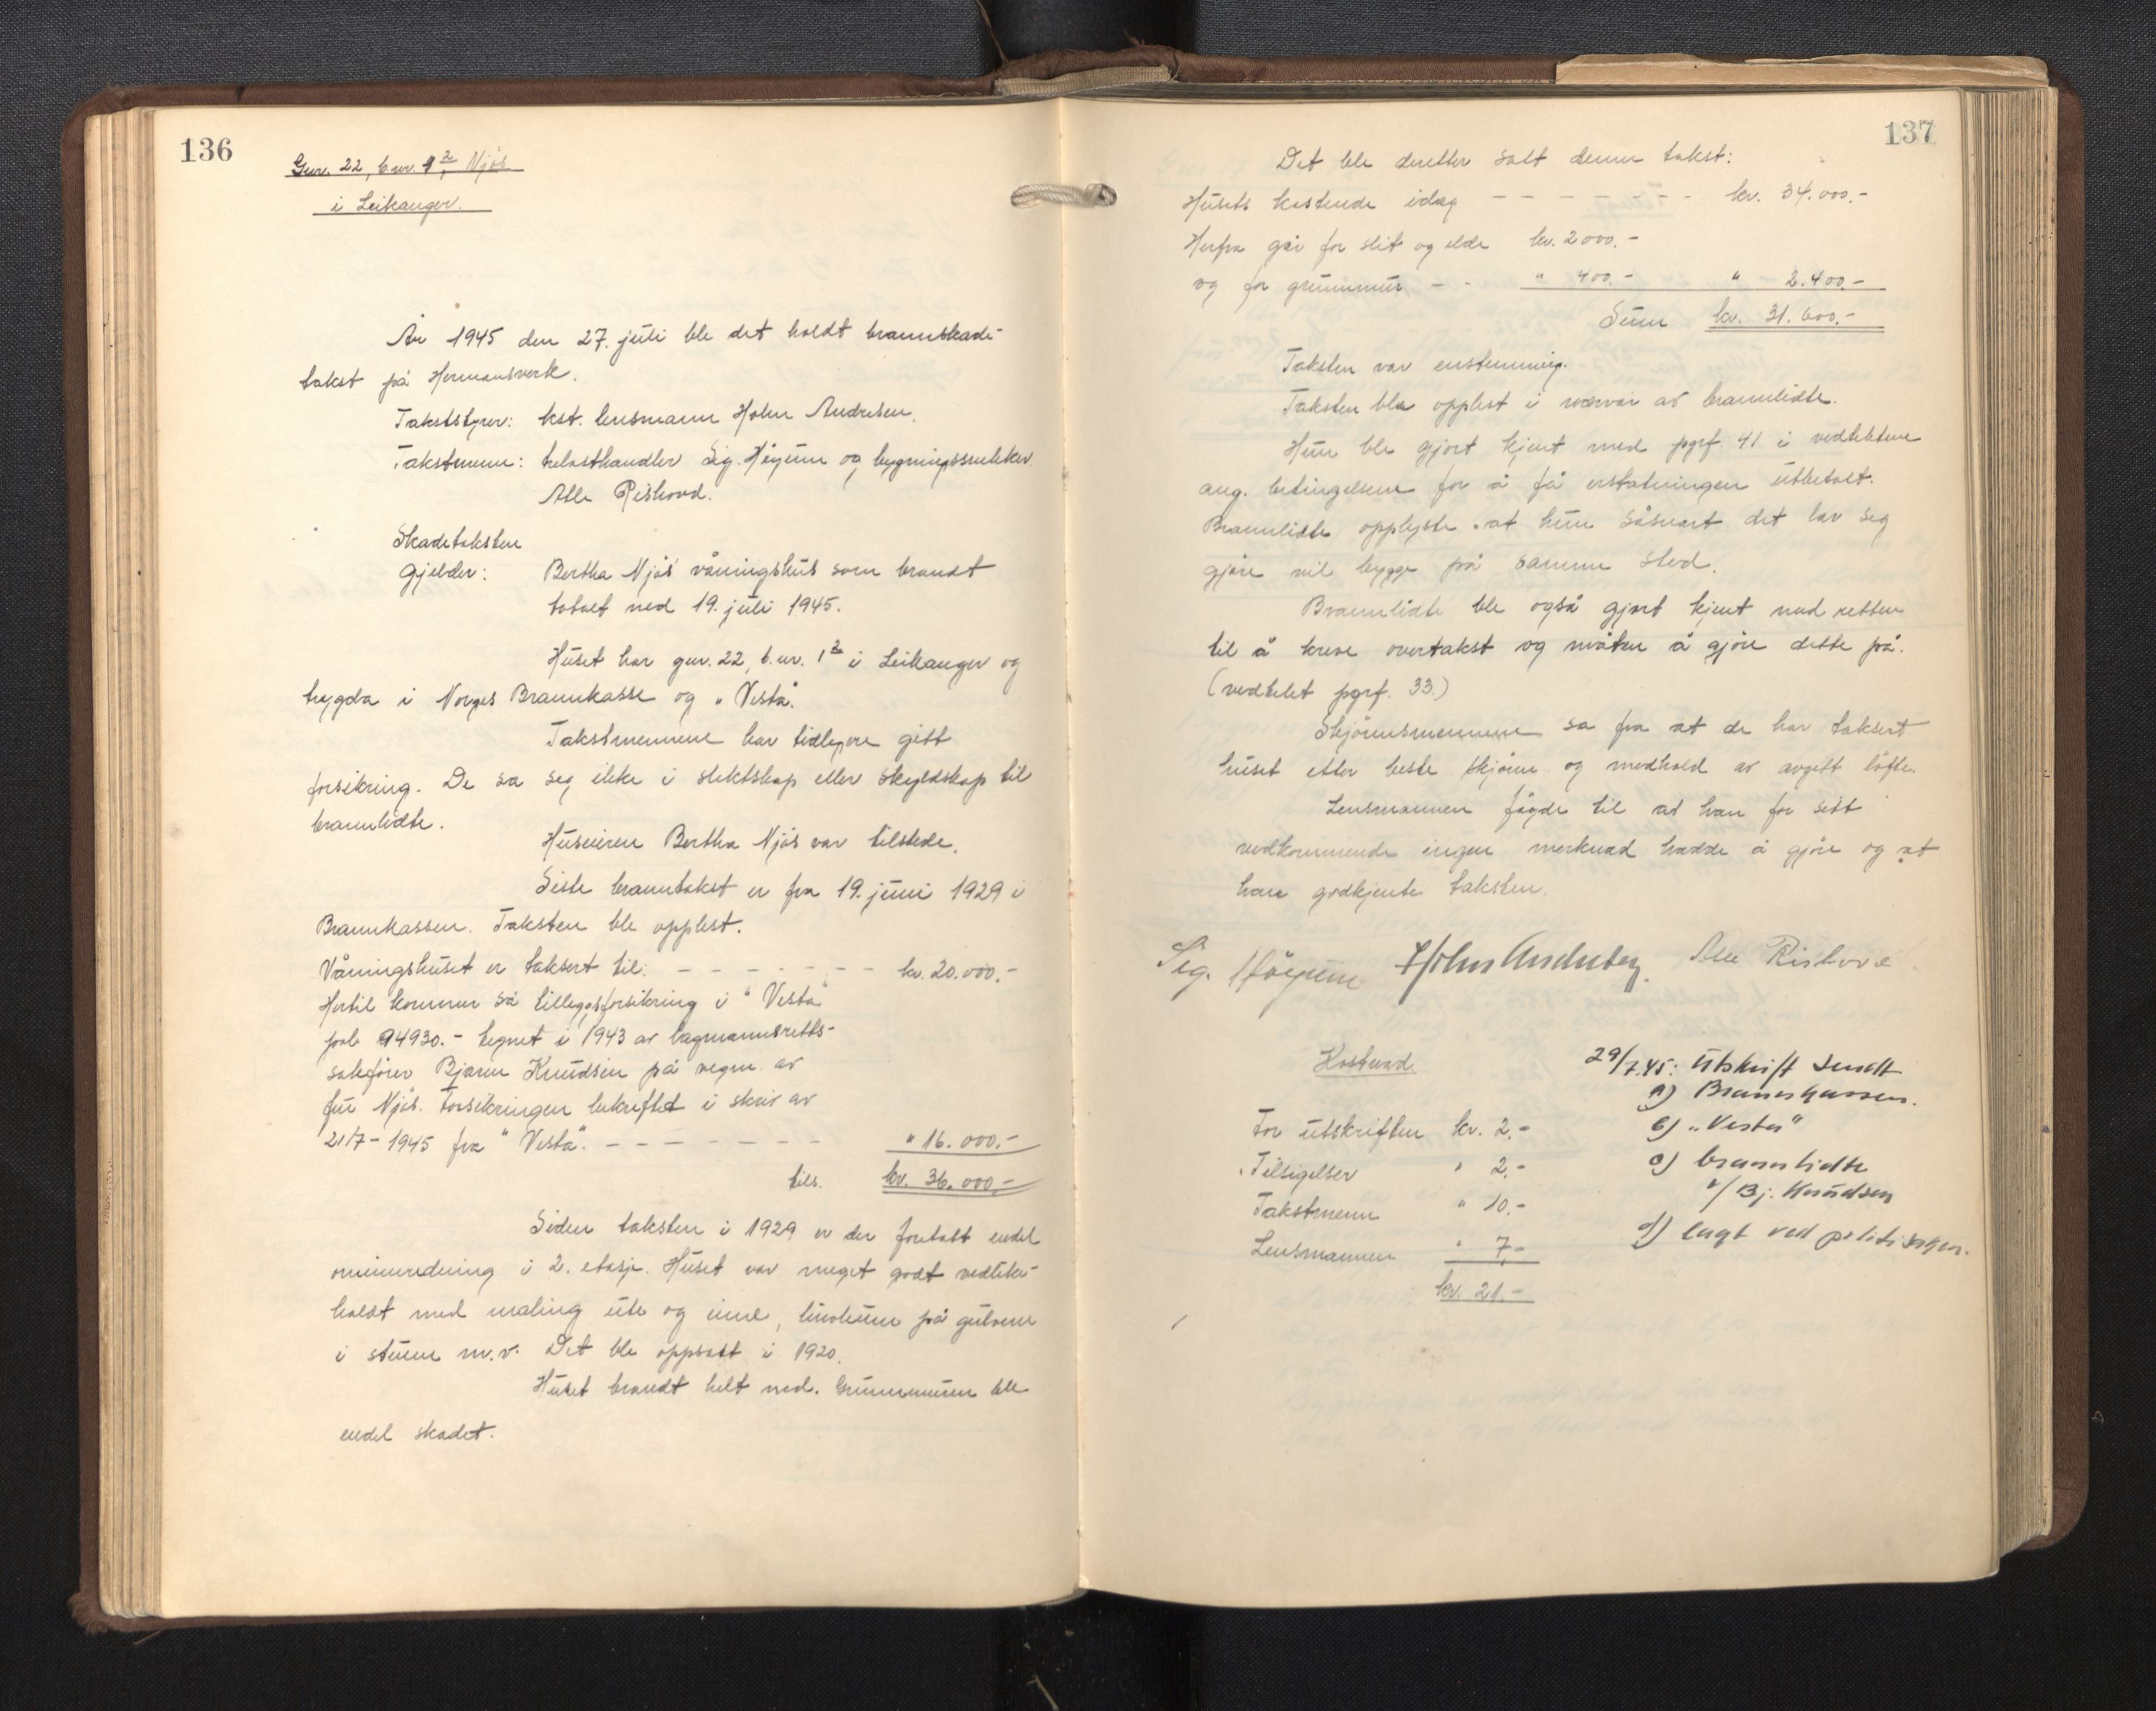 136
Gnr. 22, bnr. 1², Njøs
i Leikanger.
År 1945 den 27. juli ble det holdt brannskade-
takst på Hermansverk.
Takststyrer: kst. lensmann Holm Andresen.
Takstmenn: trelasthandler Sig. Höyum og bygningssnekker
Atle Rishovd.
Skadetaksten
gjelder: Bertha Njøs våningshus som brandt
totalt ned 19. juli 1945.
Huset har gnr. 22, b.nr. 1² i Leikanger og
trygda i Norges Brannkasse og "Vesta".
Takstmennene har tidligere gitt
forsikring. De sa seg ikke i slektskap eller skyldskap til
brannlidte.
Huseieren Bertha Njøs var tilstede.
Siste branntakst er fra 19. juni 1929 i
Brannkassen. Taksten ble opplest.
Våningshuset er taksert til: - - - - - - - kr. 20.000.-
Hertil kommer så tilleggsforsikring i "Vesta"
pol. 94930.- tegnet i 1943 av lagmannsretts-
sakfører Bjarne Knudsen på vegne av
fru Njøs. Forsikringen bekreftet i skriv av
21/7-1945 fra "Vesta". - - - - - - - " 16.000.-
tils. kr. 36.000.-
Siden taksten i 1929 er der foretatt endel
ominnredning i 2. etasje. Huset var meget godt vedlike-
holdt med maling ute og inne, linoleum på gulvene
i stuene m.v. Det ble oppsatt i 1920.
Huset brandt helt ned. Grunnmuren ble
endel skadet.
137
Det ble deretter satt denne takst:
Husets kostende idag - - - - - - - kr. 34.000.-
Herfra går for slit og elde kr. 2000.-
og for grunnmur - - " 400.- " 2.400.-
Sum kr. 31.600.-
Taksten var enstemmig.
Taksten ble opplest i nærvær av brannlidte.
Hun ble gjort kjent med pgrf. 41 i vedtektene
ang. betingelsene for å få erstatningen utbetalt.
Brannlidte opplyste at hun såsnart det lar seg
gjøre vil bygge på samme sted.
Brannlidte ble også gjort kjent med retten
til å kreve overtakst og måten å gjöre dette på.
(vedtekt pgrf. 33.)
Skjönnsmennene sa fra at de har taksert
huset etter beste skjönn og medhold av avgitt löfte.
Lensmannen föyde til at han for sitt
vedkommende ingen merknad hadde å gjöre og at
han godkjente taksten.
Sig. Höyum Holm Andresen Atle Rishovd
Kostnad.
For utskriften kr. 2.-
Tilsigelser " 2.-
Takstmenn " 10.-
Lensmannen " 7.-
kr. 21.-
29/7.45: Utskrift sendt
a) Brannkassen.
b) "Vesta"
c) brannlidte
v/ Bj. Knudsen
d) lagt ved politisaken.